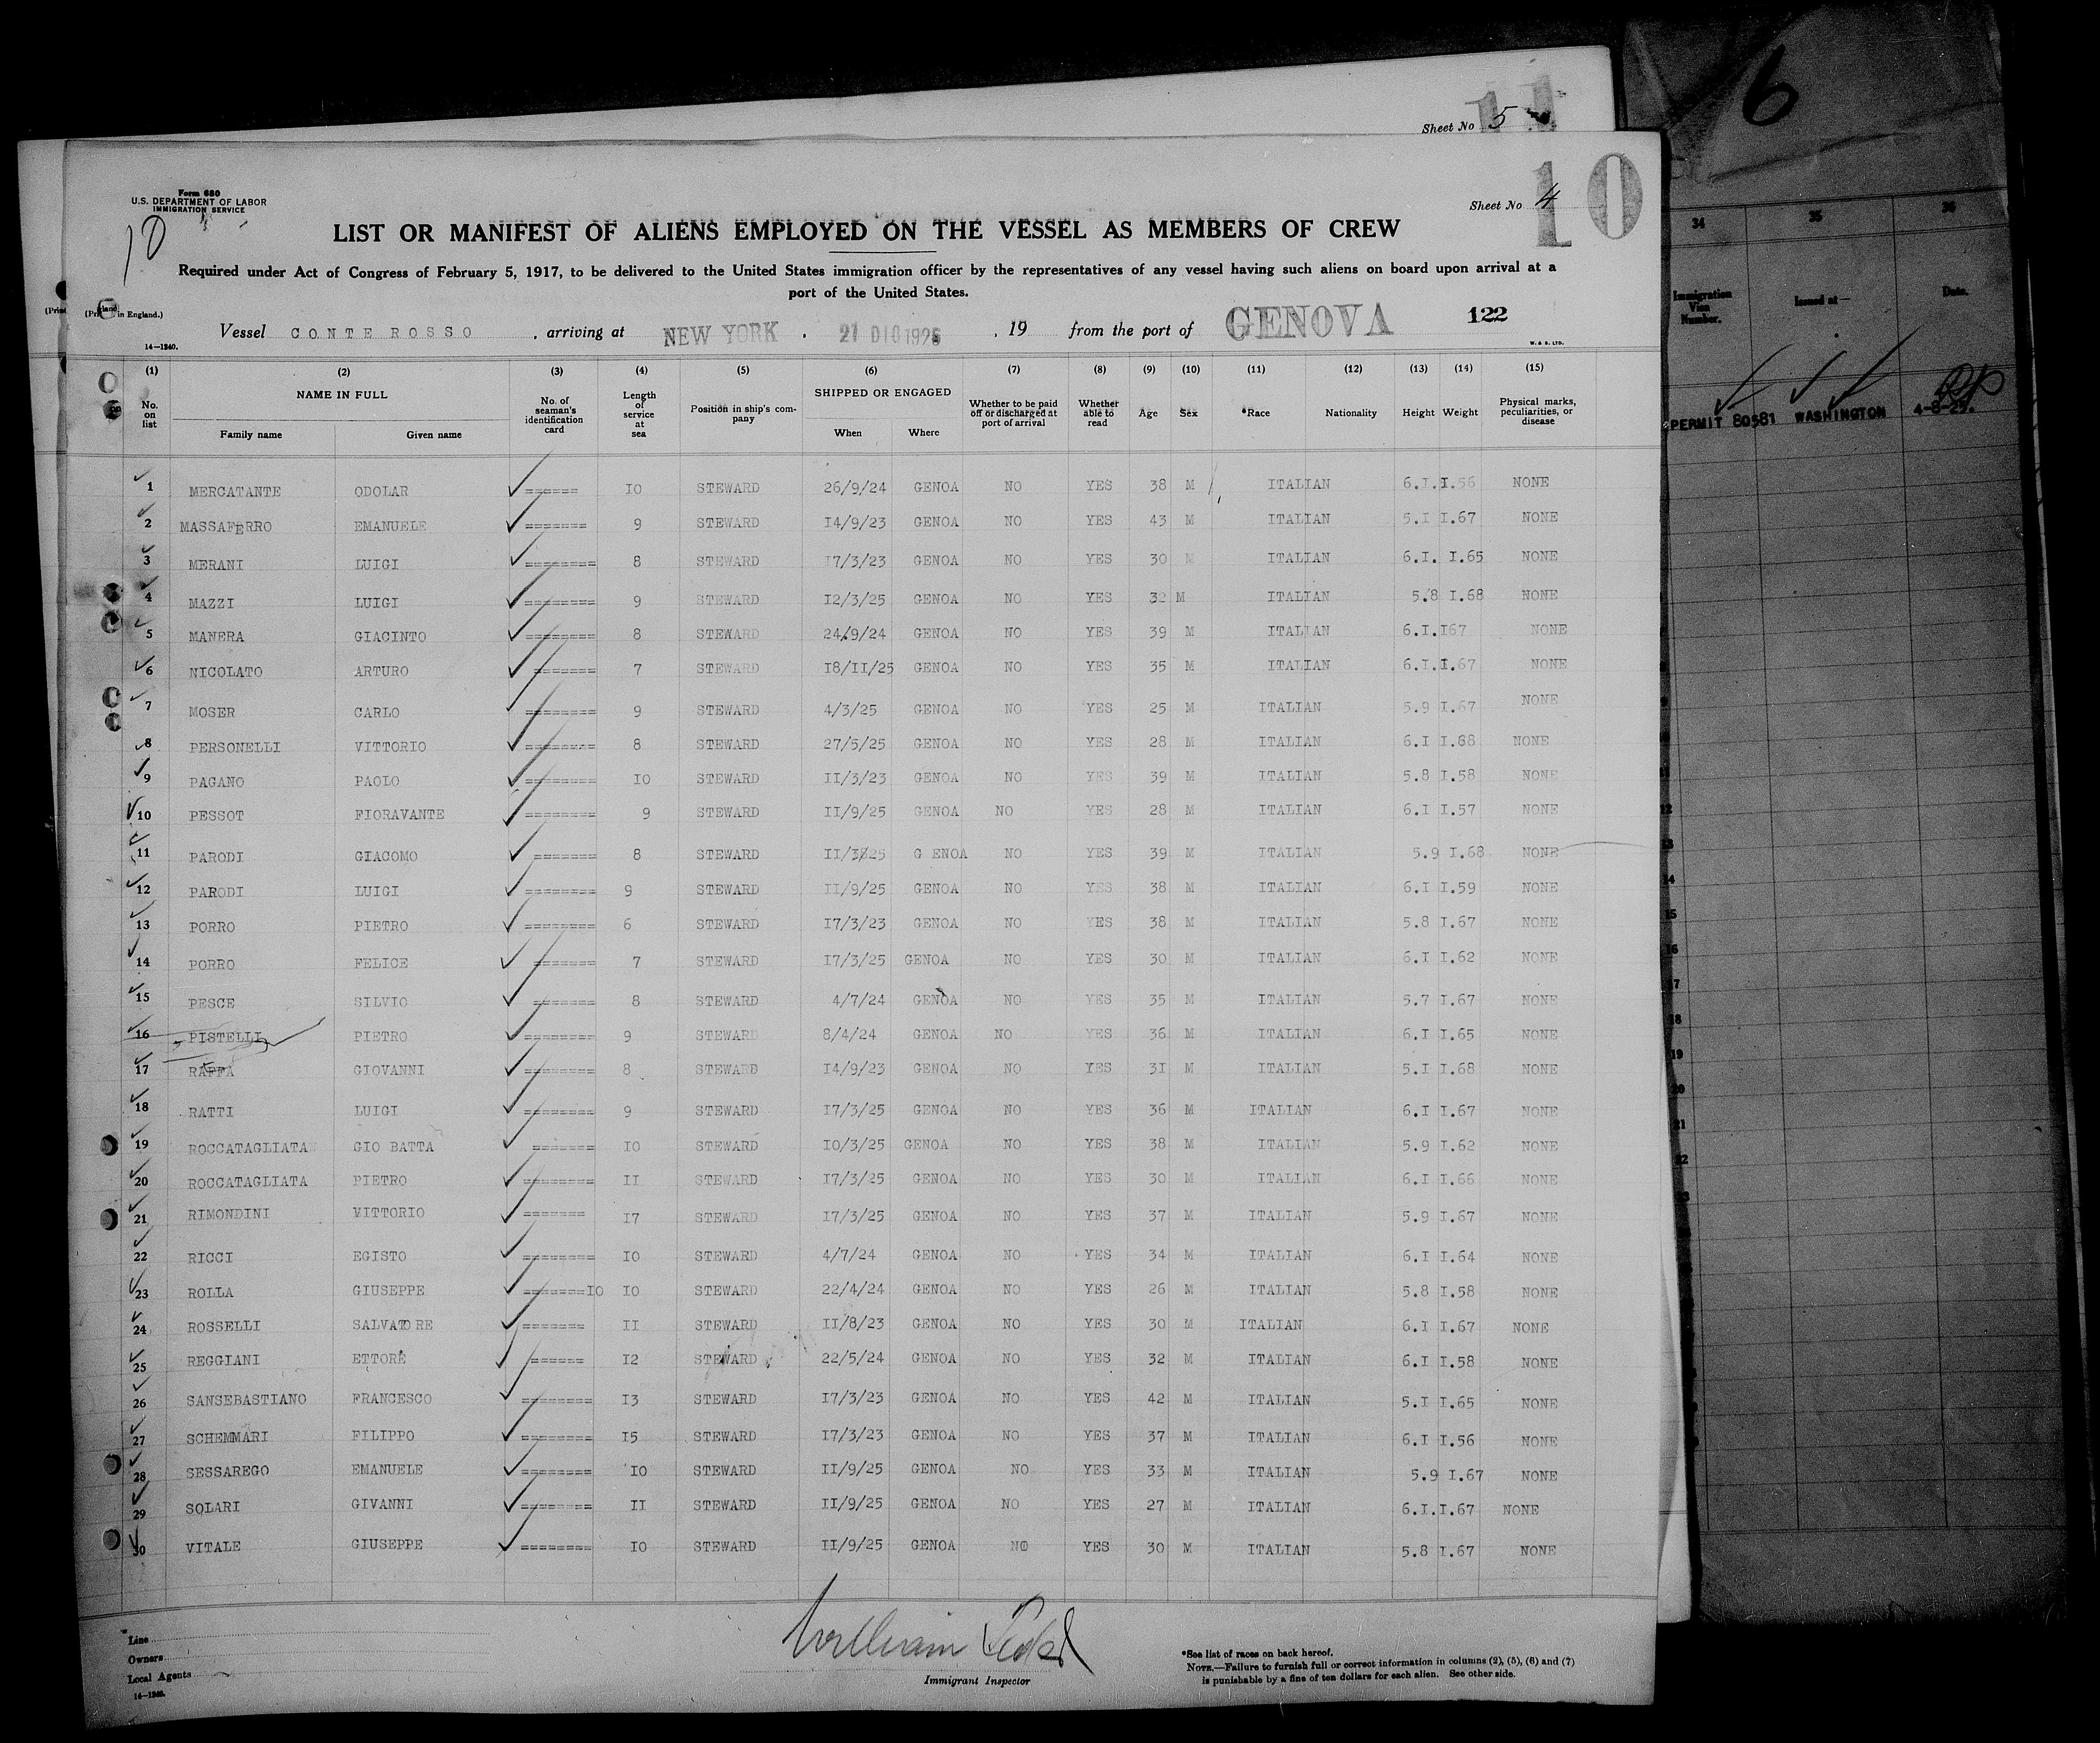 6
Sheet No 5
11
Form 680
U.S. DEPARTMENT OF LABOR
IMMIGRATION SERVICE
10
Sheet No 4
10
LIST OR MANIFEST OF ALIENS EMPLOYED ON THE VESSEL AS MEMBERS OF CREW
Required under Act of Congress of February 5, 1917, to be delivered to the United States immigration officer by the representatives of any vessel having such aliens on board upon arrival at a
port of the United States.
in England.)
Vessel CONTE ROSSO , arriving at NEW YORK . 21 DIC 1925 , 19 from the port of GENOVA 122
14—1240.
W. & S. LTD.
(1) (2) (3) (4) (5) (6) (7) (8) (9) (10) (11) (12) (13) (14) (15)
No. on list NAME IN FULL Family name Given name No. of seaman's identification card Length of service at sea Position in ship's company SHIPPED OR ENGAGED When Where Whether to be paid off or discharged at port of arrival Whether able to read Age Sex *Race Nationality Height Weight Physical marks, peculiarities, or disease
1 MERCATANTE ODOLAR ====== IO STEWARD 26/9/24 GENOA NO YES 38 M ITALIAN 6.I. I.56 NONE
2 MASSAFERRO EMANUELE ======= 9 STEWARD I4/9/23 GENOA NO YES 43 M ITALIAN 5.I I.67 NONE
3 MERANI LUIGI ======== 8 STEWARD I7/3/23 GENOA NO YES 30 M ITALIAN 6.I. I.65 NONE
4 MAZZI LUIGI ======== 9 STEWARD I2/3/25 GENOA NO YES 32 M ITALIAN 5.8 I.68 NONE
5 MANERA GIACINTO ======== 8 STEWARD 24/9/24 GENOA NO YES 39 M ITALIAN 6.I. I67 NONE
6 NICOLATO ARTURO ======= 7 STEWARD I8/II/25 GENOA NO YES 35 M ITALIAN 6.I. I.67 NONE
7 MOSER CARLO ======== 9 STEWARD 4/3/25 GENOA NO YES 25 M ITALIAN 5.9 I.67 NONE
8 PERSONELLI VITTORIO ======== 8 STEWARD 27/5/25 GENOA NO YES 28 M ITALIAN 6.I I.68 NONE
9 PAGANO PAOLO ======== IO STEWARD II/3/23 GENOA NO YES 39 M ITALIAN 5.8 I.58 NONE
10 PESSOT FIORAVANTE ======== 9 STEWARD II/9/25 GENOA NO YES 28 M ITALIAN 6.I I.57 NONE
11 PARODI GIACOMO ======= 8 STEWARD II/3/25 G ENOA NO YES 39 M ITALIAN 5.9 I.68 NONE
12 PARODI LUIGI ======== 9 STEWARD II/9/25 GENOA NO YES 38 M ITALIAN 6.I I.59 NONE
13 PORRO PIETRO ======== 6 STEWARD I7/3/23 GENOA NO YES 38 M ITALIAN 5.8 I.67 NONE
14 PORRO FELICE ======= 7 STEWARD I7/3/25 GENOA NO YES 30 M ITALIAN 6.I I.62 NONE
15 PESCE SILVIO ======= 8 STEWARD 4/7/24 GENOA NO YES 35 M ITALIAN 5.7 I.67 NONE
16 PISTELLI PIETRO ======== 9 STEWARD 8/4/24 GENOA NO YES 36 M ITALIAN 6.I I.65 NONE
17 RAFFA GIOVANNI ======== 8 STEWARD I4/9/23 GENOA NO YES 3I M ITALIAN 5.I I.68 NONE
18 RATTI LUIGI ======== 9 STEWARD I7/3/25 GENOA NO YES 36 M ITALIAN 6.I I.67 NONE
19 ROCCATAGLIATA GIO BATTA ======= IO STEWARD IO/3/25 GENOA NO YES 38 M ITALIAN 5.9 I.62 NONE
20 ROCCATAGLIATA PIETRO ======== II STEWARD I7/3/25 GENOA NO YES 30 M ITALIAN 6.I I.66 NONE
21 RIMONDINI VITTORIO ======= I7 STEWARD I7/3/25 GENOA NO YES 37 M ITALIAN 5.9 I.67 NONE
22 RICCI EGISTO ======== IO STEWARD 4/7/24 GENOA NO YES 34 M ITALIAN 6.I I.64 NONE
23 ROLLA GIUSEPPE =======IO IO STEWARD 22/4/24 GENOA NO YES 26 M ITALIAN 5.8 I.58 NONE
24 ROSSELLI SALVATORE ======= II STEWARD II/8/23 GENOA NO YES 30 M ITALIAN 6.I I.67 NONE
25 REGGIANI ETTORE ====== I2 STEWARD 22/5/24 GENOA NO YES 32 M ITALIAN 6.I I.58 NONE
26 SANSEBASTIANO FRANCESCO ======== I3 STEWARD I7/3/23 GENOA NO YES 42 M ITALIAN 5.I I.65 NONE
27 SCHEMMARI FILIPPO ======== I5 STEWARD I7/3/23 GENOA NO YES 37 M ITALIAN 6.I I.56 NONE
28 SESSAREGO EMANUELE ======== IO STEWARD II/9/25 GENOA NO YES 33 M ITALIAN 5.9 I.67 NONE
29 SOLARI GIVANNI ======== II STEWARD II/9/25 GENOA NO YES 27 M ITALIAN 6.I. I.67 NONE
30 VITALE GIUSEPPE ======== IO STEWARD II/9/25 GENOA NO YES 30 M ITALIAN 5.8 I.67 NONE
Line
Owners
Local Agents
14—1240.
William
Immigrant Inspector
*See list of races on back hereof.
NOTE.—Failure to furnish full or correct information in columns (2), (5), (6) and (7)
is punishable by a fine of ten dollars for each alien. See other side.
34 35 36
Immigration Visa Number. Issued at— Date.
PERMIT 80581 WASHINGTON 4-8-25.